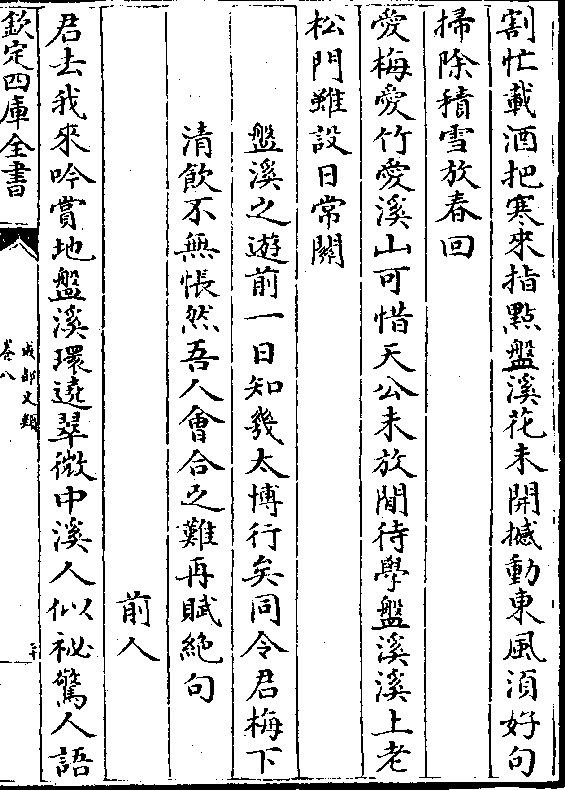 割忙載酒把寒来指點盤溪花未開撼動東風湏好句
掃除積雪放春回
愛梅愛竹愛溪山可惜天公未放閒待學盤溪溪上老
松門雖設日常關
盤溪之遊前一日知幾太博行矣同令君梅下
清飲不無悵然吾人會合之難再賦絶句
前人
君去我來吟賞地盤溪環遶翠微中溪人似祕驚人語
欽定四庫全書
成都文類
卷八